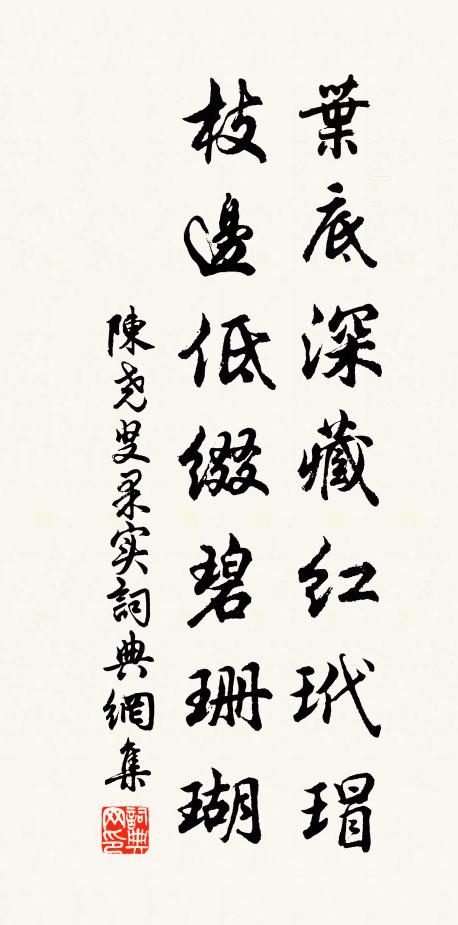 葉底深藏紅玳瑁
枝邊低綴碧珊瑚
陳尭叟果实詞典網集
詞典网印